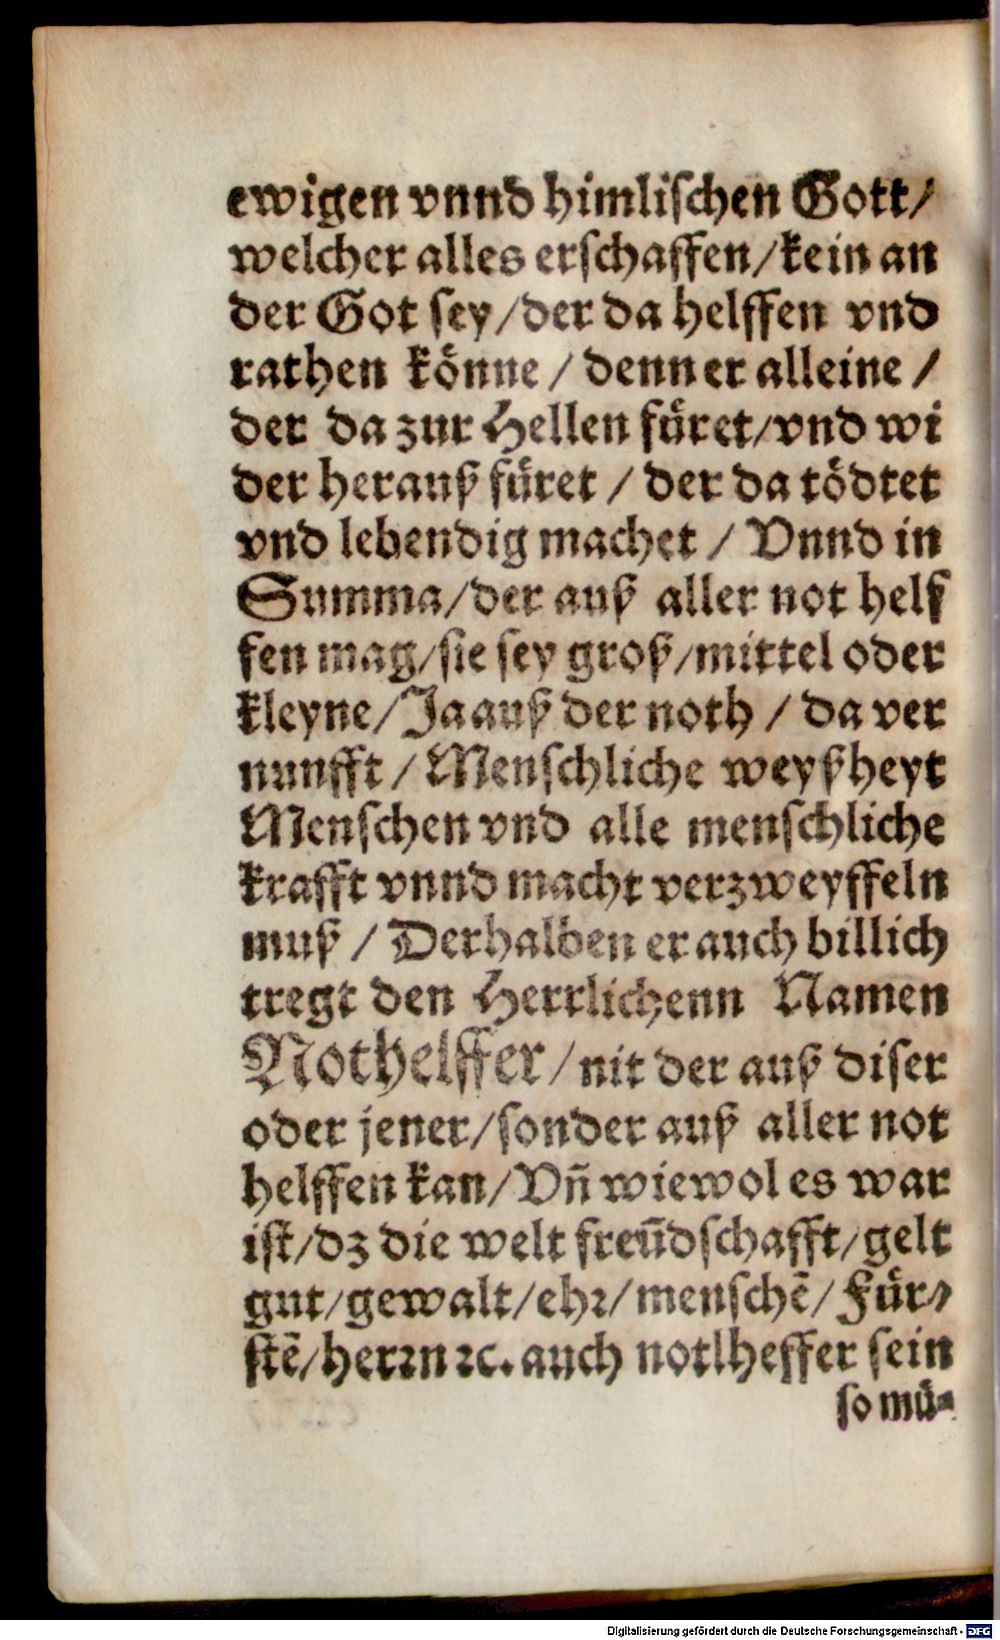 ewigen vnnd himlischen Gott/
welcher alles erschaffen/kein an
der Got sey/der da helffen vnd
rathen könne / denn er alleine /
der da zur Hellen füret/vnd wi
der herauß füret / der da tödtet
vnd lebendig machet / Vnnd in
Summa/der auß aller not helf
fen mag/sie sey groß/mittel oder
kleyne/Ja auß der noth / da ver
nunfft / Menschliche weyßheyt
Menschen vnd alle menschliche
krafft vnnd macht verzweyffeln
muß / Derhalben er auch billich
tregt den Herrlichenn Namen
Nothelffer/nit der auß diser
oder jener/sonder auß aller not
helffen kan/Vñ wiewol es war
ist/dz die welt freūdschafft/gelt
gut/gewalt/ehꝛ/menschẽ/Für⸗
stẽ/herꝛn ꝛc. auch notlheffer sein
so mü⸗
Digitalisierung gefördert durch die Deutsche Forschungsgemeinschaft - DFG